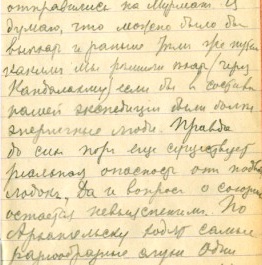 отправились на Мурман. Я
думаю, что можно было бы
выехать и раньше тем же путем
какими мы решили ехать через
Кандалакшу если бы в составе
нашей экспедиции были более
энергичные люди. Правда
до сих пор еще существует
реальная опасность от подв.
лодок, да и вопрос о союзн
остается невыясненным. По
Архангельску ходят самые
разнообразные слухи. Одни